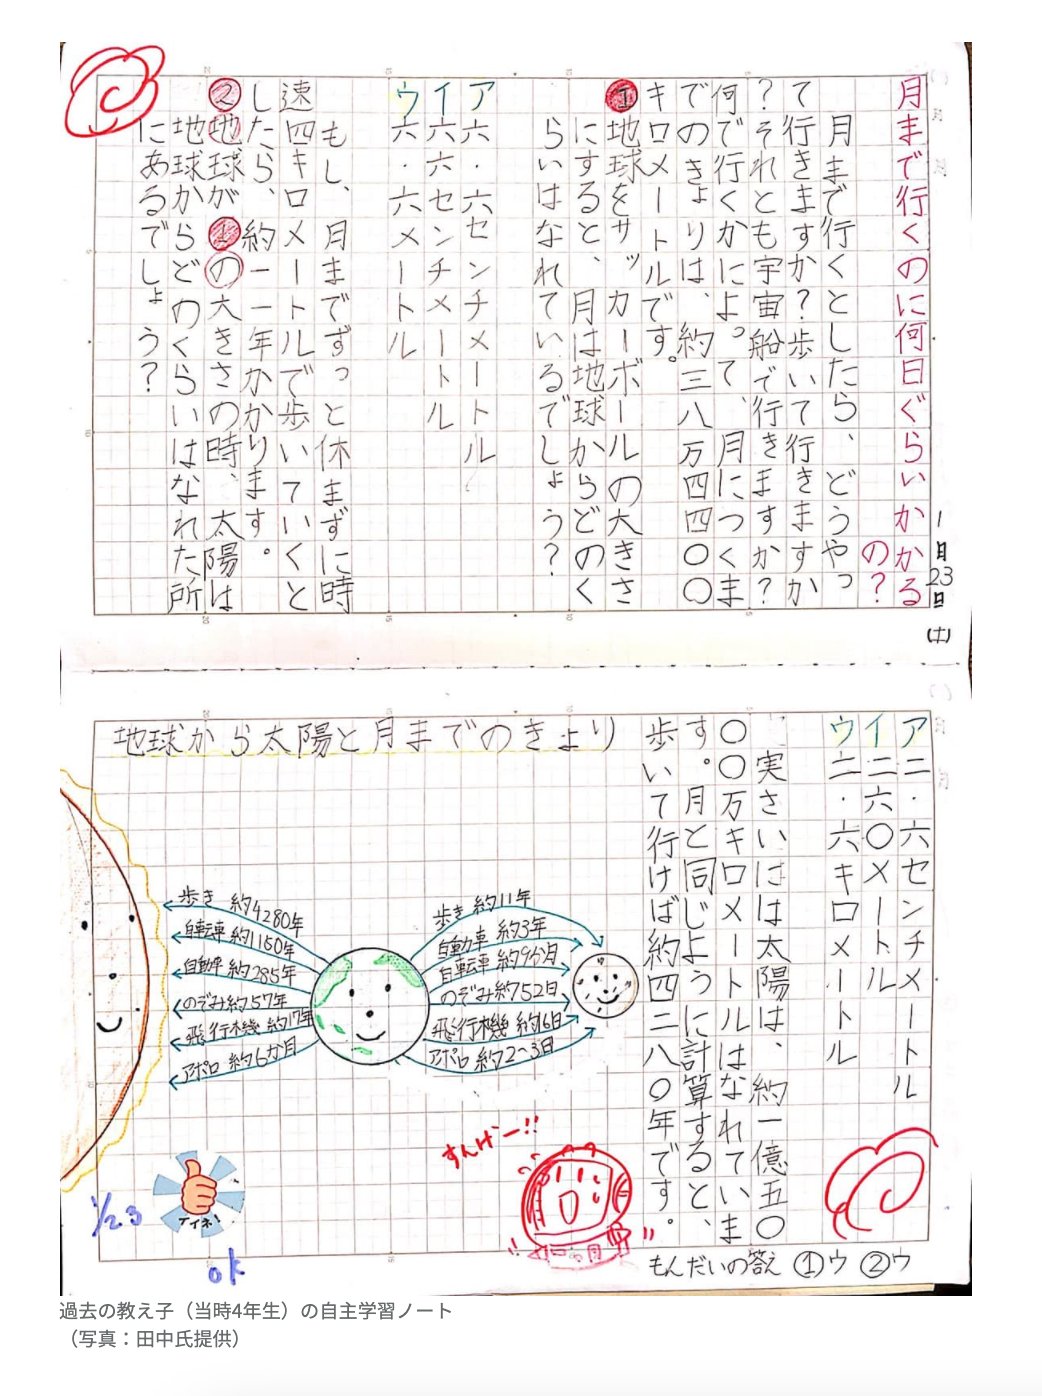 月まで行くのに何日ぐらいかかる
の?
1月23日
(土)
月まで行くとしたら、どうやっ
て行きますか?歩いて行きますか
?それとも宇宙船で行きますか?
何で行くかによって、月につくま
でのきょりは、約三八万四四〇〇
キロメートルです。
①地球をサッカーボールの大きさ
にすると、月は地球からどのく
らいはなれているでしょう?
ア六.六センチメートル
イ六六センチメートル
ウ六.六メートル
もし、月までずっと休まずに時
速四キロメートルで歩いていくと
したら、約一一年かかります。
②地球が①の大きさの時、太陽は
地球からどのくらいはなれた所
にあるでしょう?
ア二.六センチメートル
イ二六〇メートル
ウ二.六キロメートル
実さいには太陽は、約一億五〇
〇〇万キロメートルはなれていま
す。月と同じように計算すると、
歩いて行けば約四二八〇年です。
もんだいの答え ①ウ ②ウ
地球から太陽と月までのきょり
歩き 約4280年
自転車 約1150年
自動車 約285年
のぞみ約57年
飛行機 約17年
アポロ 約6か月
歩き 約11年
自動車 約3年
自転車 約9か月
のぞみ約52日
飛行機 約16日
アポロ 約2~3日
すんげー!!
イイネ!
1/23
ok
過去の教え子(当時4年生)の自主学習ノート
(写真:田中氏提供)